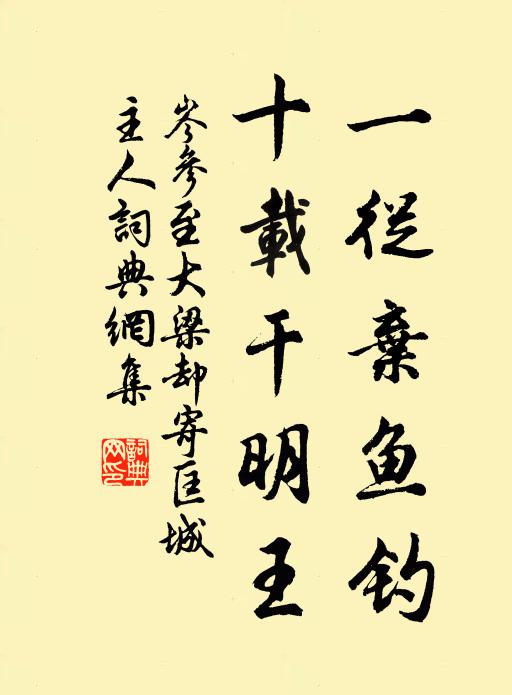 一從棄鱼钓
十載干明王
岑參至大梁却寄匡城
主人詞典網集
詞典
网印